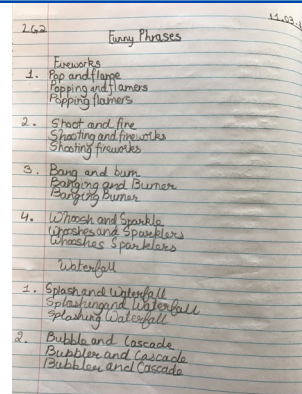 11.03.
2.G2
Funny Phrases
Fireworks
1. Pop and flame
Popping and flamers
Popping flamers
2. Shoot and fire
Shooting and fireworks
Shooting fireworks
3. Bang and burn
Banging and Burner
Banging Burner
4. Whoosh and Sparkle
Whooshes and Sparklers
Whooshes Sparklers
Waterfall
1. Splash and Waterfall
Splashing and Waterfall
Splashing Waterfall
2. Bubble and Cascade
Bubbler and Cascade
Bubbler and Cascade